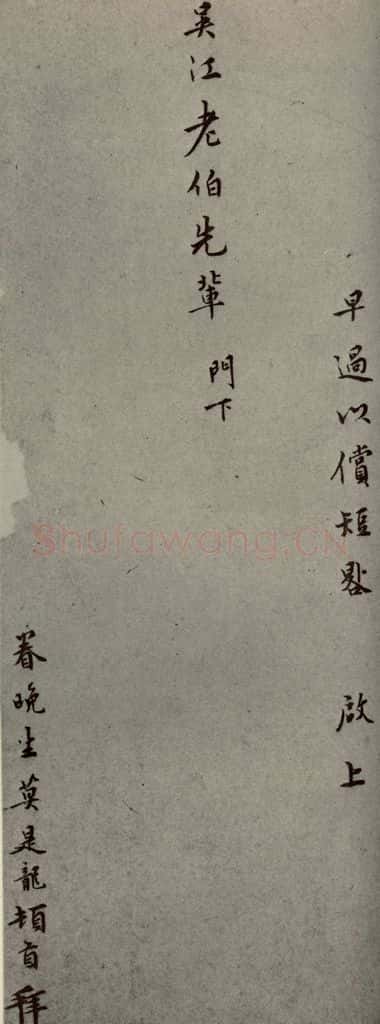 早過以償短 啟上
吳江老伯先輩 門下
眷晚生莫是龍頓首拜
Shufawang.CN